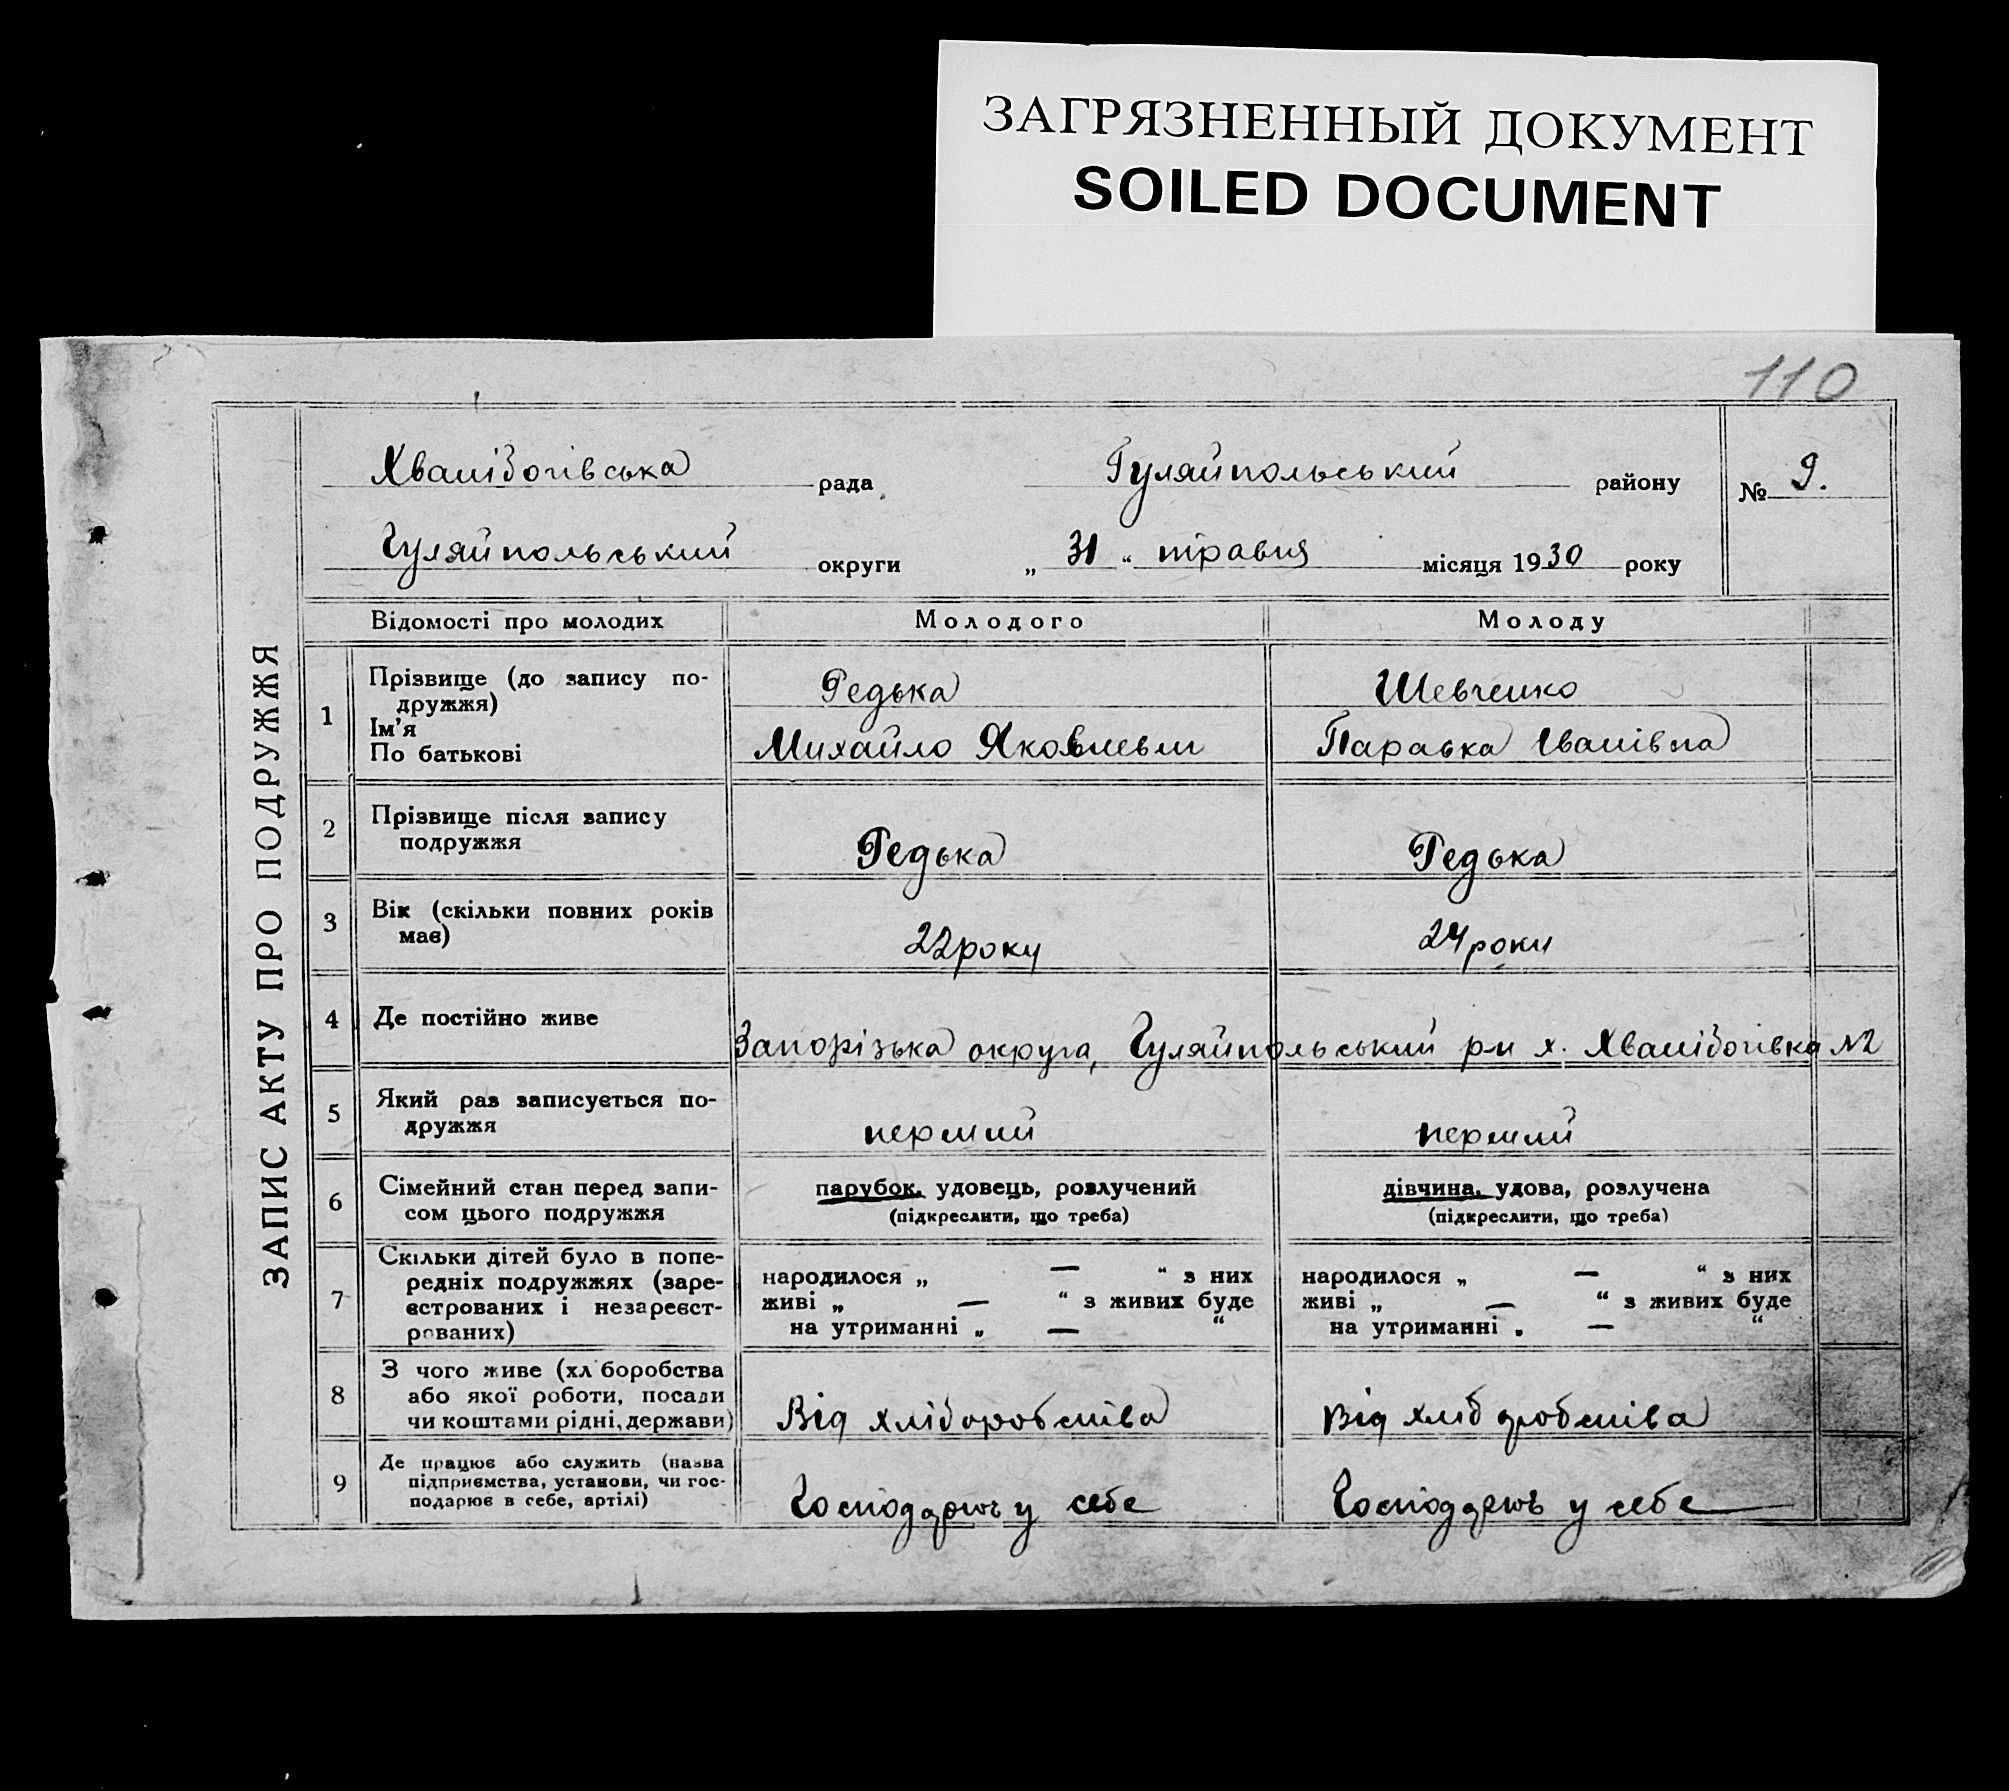 ЗАГРЯЗНЕННЫЙ ДОКУМЕНТ
SOILED DOCUMENT
110
ЗАПИС АКТУ ПРО ПОДРУЖЖЯ
Хвалібогівська рада Гуляйпольський району № 9.
Гуляйпольський округи „ 31 “ травня місяця 1930 року
Відомості про молодих Молодого Молоду
1 Прізвище (до запису по-
дружжя) Редька Шевченко
Ім’я
По батькові Михайло Яковлевич Параска Іванівна
2 Прізвище після запису
подружжя Редька Редька
3 Вік (скільки повних років
має) 22 року 24 роки
4 Де постійно живе Запорізька округа, Гуляйпольський р-н х. Хвалібогівка №2
5 Який раз записується по-
дружжя перший перший
6 Сімейний стан перед запи- парубок, удовець, розлучений дівчина, удова, розлучена
сом цього подружжя (підкреслити, що треба) (підкреслити, що треба)
7 Скільки дітей було в попе-
редніх подружжях (заре- народилося „ — “ з них народилося „ — “ з них
єстрованих і незареєст- живі „ — “ з живих буде живі „ — “ з живих буде
рованих) на утриманні „ — “ на утриманні „ — “
8 З чого живе (хл боробства
або якої роботи, посади
чи коштами рідні, держави) Від хліборобства Від хліборобства
9 Де працює або служить (назва
підприємства, установи, чи гос-
подарює в себе, артілі) у себе у себе